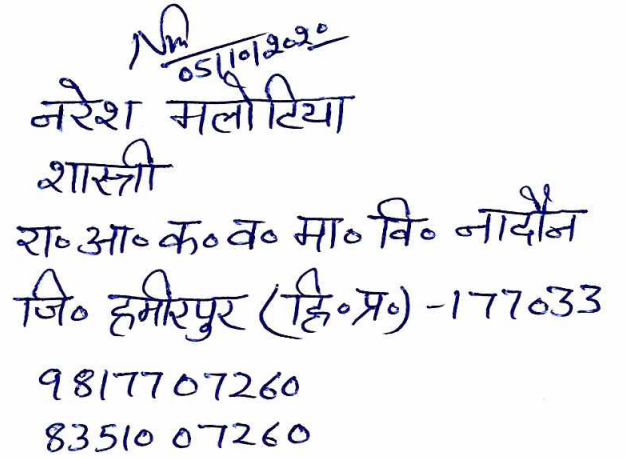 Nm
05/10/2020
नरेश मलोटिया
शास्त्री
रा० आ० क० व० मा० वि० नादौन
जि० हमीरपुर (हि०प्र०) -177033
9817707260
83510 07260